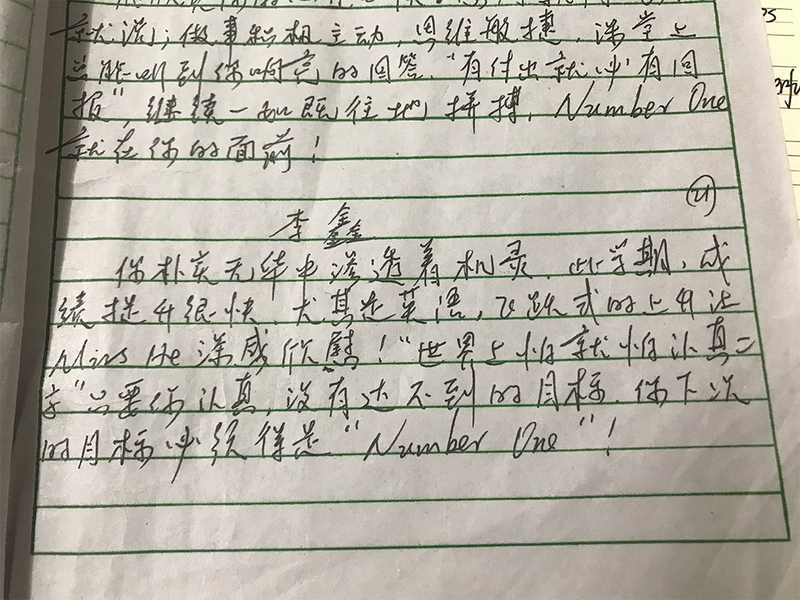 就滋；做事积极主动，思维敏捷，课堂上
总能听到你响亮的回答."有付出就必有回
报"，继续一如既往地拼搏，Number One
就在你的面前！
21
李鑫
你朴实无华中渗透着机灵.此学期，成
绩提升很快，尤其是英语，飞跃式的上升让
Miss He深感欣慰！"世界上怕就怕认真二
字"只要你认真，没有达不到的目标.你下次
的目标必须得是"Number One"！